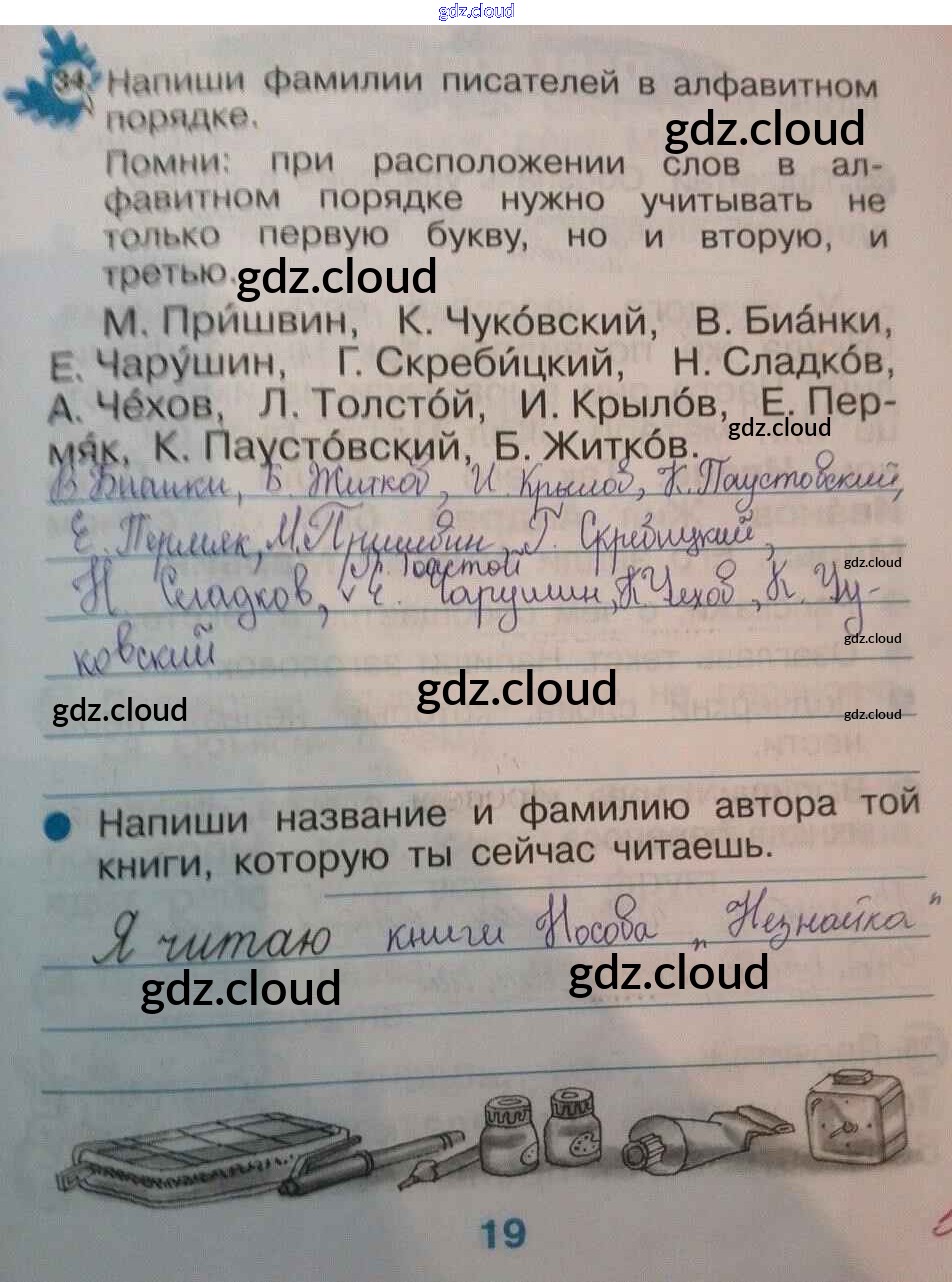 gdz.cloud
34. Напиши фамилии писателей в алфавитном
порядке.
gdz.cloud
Помни: при расположении слов в ал-
фавитном порядке нужно учитывать не
только первую букву, но и вторую, и
третью.
gdz.cloud
М. При́швин, К. Чуко́вский, В. Биа́нки,
Е. Чару́шин, Г. Скреби́цкий, Н. Сладко́в,
А. Че́хов, Л. Толсто́й, И. Крыло́в, Е. Пер-
gdz.cloud
мя́к, К. Паусто́вский, Б. Житко́в.
В. Бианки, Б. Житков, И. Крылов, К. Паустовский,
Е. Пермяк, М. Пришвин, Г. Скребицкий,
gdz.cloud
Л. Толстой
Н. Сладков, √ Е. Чарушин, К. Чехов, К. Чу-
gdz.cloud
ковский
gdz.cloud
gdz.cloud
gdz.cloud
Напиши название и фамилию автора той
книги, которую ты сейчас читаешь.
Я читаю книги Носова „Незнайка"
gdz.cloud
gdz.cloud
19